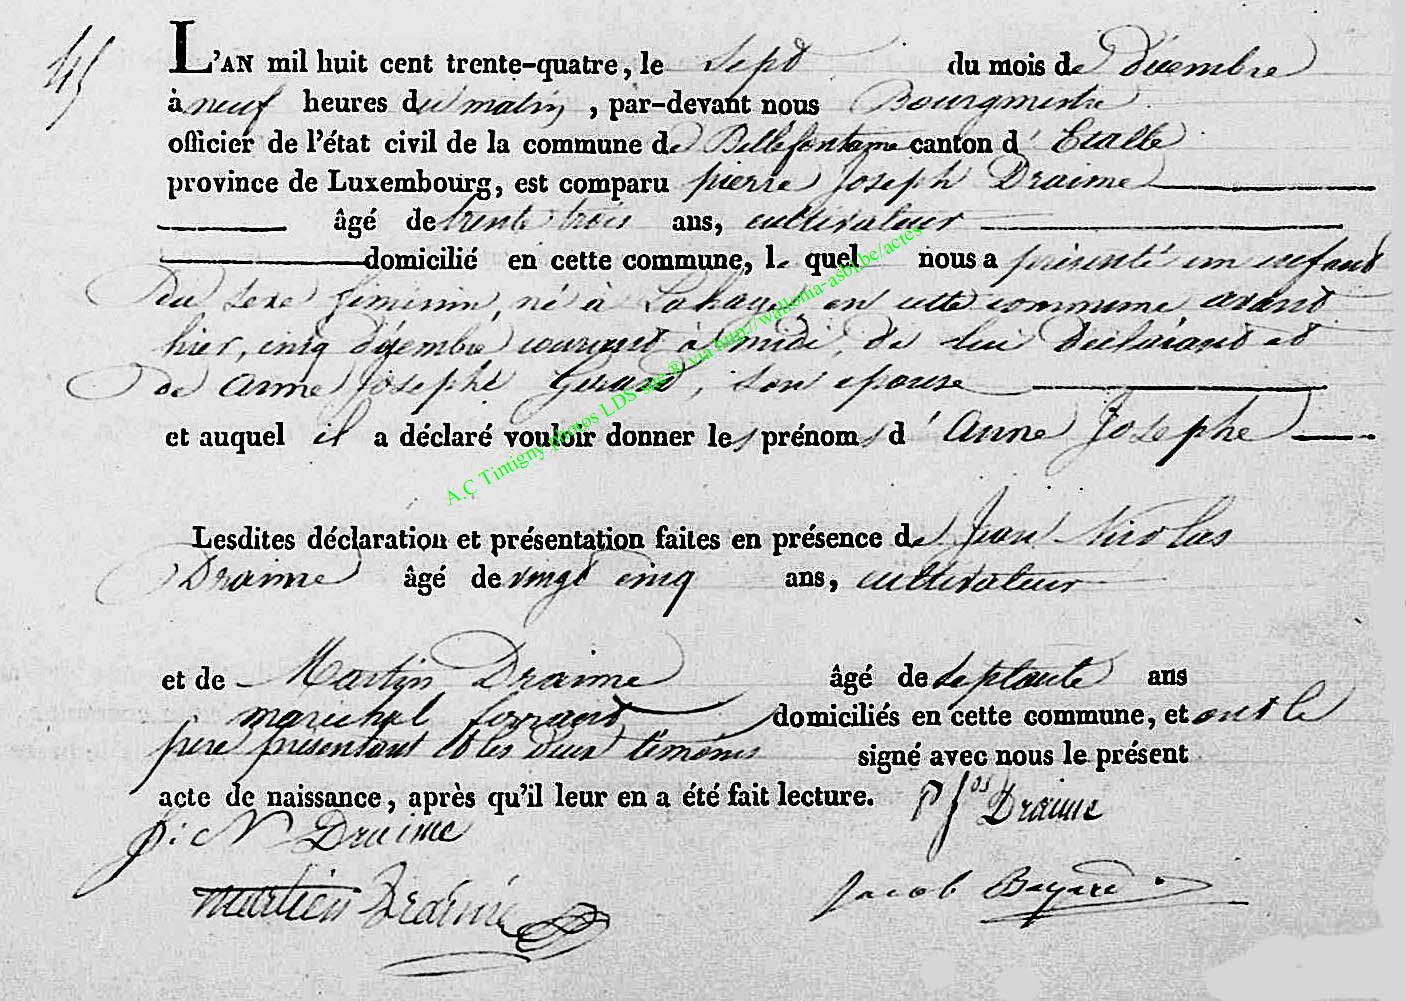 45
L'AN mil huit cent trente-quatre, le sept du mois de décembre
à neuf heures du matin, par-devant nous Bourgmestre
officier de l'état civil de la commune de Bellefontaine canton d'Etalle
province de Luxembourg, est comparu pierre Joseph Draime
âgé de trente trois ans, cultivateur
domicilié en cette commune, le quel nous a présenté un enfant
du sexe féminin, né à Lahage, en cette commune avant
hier, cinq décembre courant à midi, de lui déclarant et
de anne Josephe Gerard, son epouse
et auquel il a déclaré vouloir donner les prénoms d'Anne Josephe
Lesdites déclaration et présentation faites en présence de Jean Nicolas
Draime âgé de vingt cinq ans, cultivateur
et de Martin Draime âgé de septante ans
marechal ferrant domiciliés en cette commune, et ont le
père présentant et les deux témoins signé avec nous le présent
acte de naissance, après qu'il leur en a été fait lecture. P Jos Draime
J: N Draime
martien Draime Jacob Bayard
A.Ç Tintigny photos LDS site ® via http://wallonia-asbl.be/actes